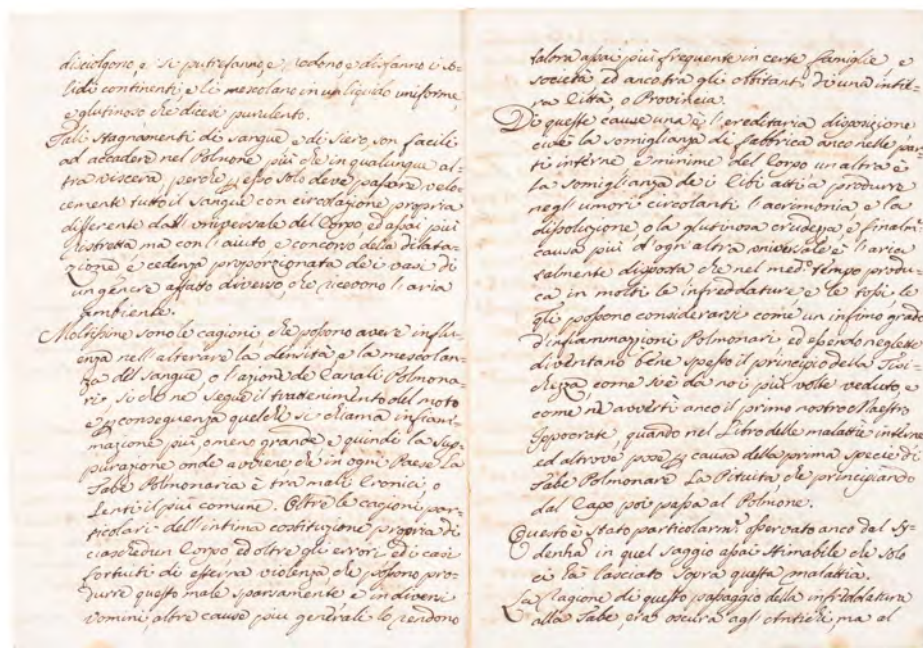 disciolgono, e si putrefanno, e rodono, e disfanno i so-
lidi continenti e li mescolano in un liquido uniforme,
e glutinoso che dicesi purulento.
Tali stagnamenti di sangue e di siero son facili
ad accadere nel Polmone più che in qualunque al-
tra viscera, perche p esso solo deve passare velo-
cemente tutto il sangue con circolazione propria
differente dall'universale del Corpo ed assai più
ristretta ma con l'aiuto e concorso della dilata-
zione e cedenza proporzionata dei vasi di
un genere affatto diverso, che ricevono l'aria
ambiente.
Moltissime sono le cagioni che possono avere influ-
enza nell'alterare la densità e la mescolan-
za del sangue, o l'azione de Canali Polmona-
ri si che ne segue il trattenimento del moto
e p conseguenza quel che si chiama infiam-
mazione più, o meno grande e quindi la sup-
purazione onde avviene che in ogni Paese La
Tabe Polmonaria è tra mali Cronici, o
Lenti il più comune. Oltre le cagioni par-
ticolari dell'intima costituzione propria di
ciaschedun Corpo ed oltre gli errori ed i casi
fortuiti di esterna violenza, che possono pro-
durre questo male sparsamente e in diversi
uomini, altre cause più generali lo rendono
talora assai più frequente in certe famiglie e
società ed anco tra gli abitanti di una intie-
ra Città, o Provincia.
Di queste cause una è l'ereditaria disposizione
cioè la somiglianza di fabbrica anco nelle par-
ti interne e minime del Corpo un altra è
la somiglianza dei Cibi atti a produrre
negli umori circolanti l'acrimonia e la
dissoluzione, o la glutinosa crudezza e finalm.
causa più d'ogn'altra universale è l'aria
talmente disposta che nel med.º tempo produ-
ca in molti le infreddature e le tossi le
qli possono considerarsi come un infimo grado
d'infiammazioni Polmonari ed essendo neglette
diventano bene spesso il principio della Tisi-
chezza come si è da noi più volte veduto e
come ne avvertì anco il primo nostro Maestro
Ippocrate, quando nel Libro delle malattie interne
ed altrove pose p causa della prima specie di
Tabe Polmonare La Pituita che principiando
dal Capo poi passa al Polmone.
Questo è stato particolarm.e osservato anco dal Sy-
denham in quel saggio assai stimabile che solo
ci hà lasciato sopra questa malattia.
La ragione di questo passaggio della infreddatura
alla Tabe, era oscura agl'Antichi, ma al